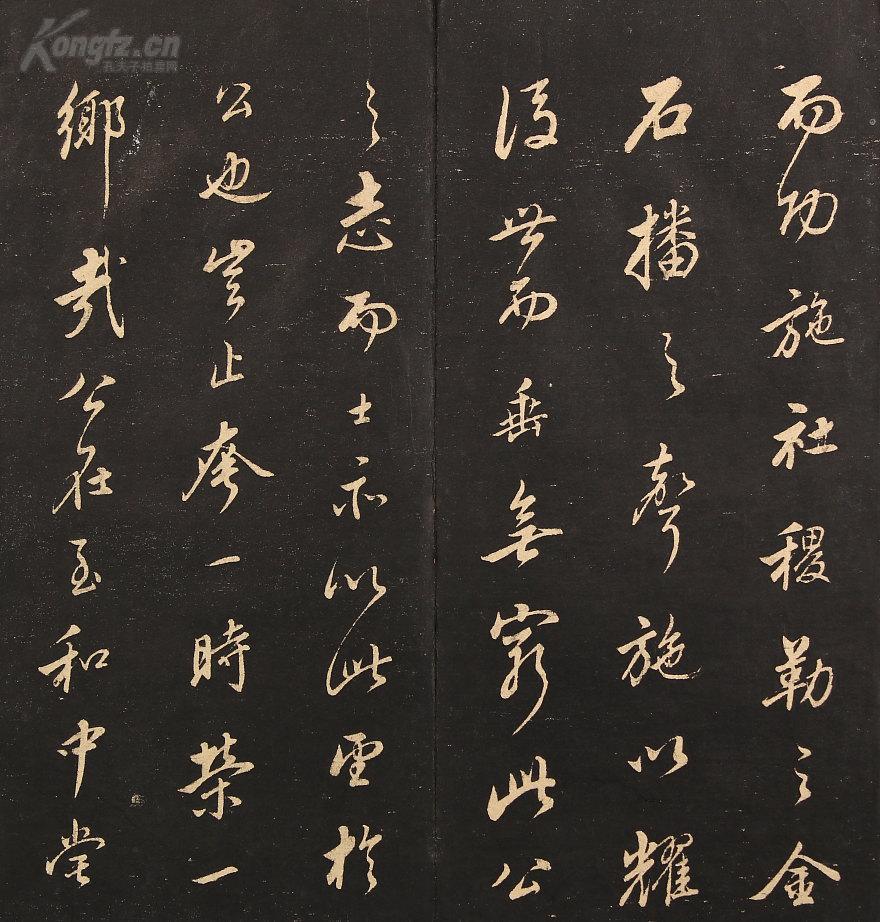 而功施社稷勒之金
石播之聲施以耀
後世而垂無窮此公
之志而士亦以此望於
公也豈止夸一時榮一
鄉哉公在至和中嘗
Kongfz.cn
孔夫子拍卖网